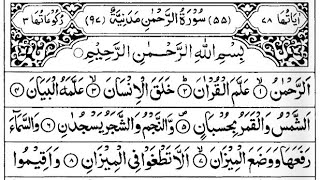 اٰيَاتُهَا ٧٨ (٥٥) سُوْرَةُ الرَّحْمٰنِ مَدَنِيَّةٌ (٩٧) رُكُوْعَاتُهَا ٣
بِسْمِ اللّٰهِ الرَّحْمٰنِ الرَّحِيْمِ
اَلرَّحْمٰنُ ۙ﴿۱﴾ عَلَّمَ الْقُرْاٰنَ ؕ﴿۲﴾ خَلَقَ الْاِنْسَانَ ۙ﴿۳﴾ عَلَّمَهُ الْبَيَانَ ﴿۴﴾
اَلشَّمْسُ وَالْقَمَرُ بِحُسْبَانٍ ۪﴿۵﴾ وَّالنَّجْمُ وَالشَّجَرُ يَسْجُدٰنِ ﴿۶﴾ وَالسَّمَآءَ
رَفَعَهَا وَوَضَعَ الْمِيْزَانَ ۙ﴿۷﴾ اَلَّا تَطْغَوْا فِى الْمِيْزَانِ ﴿۸﴾ وَاَقِيْمُوا